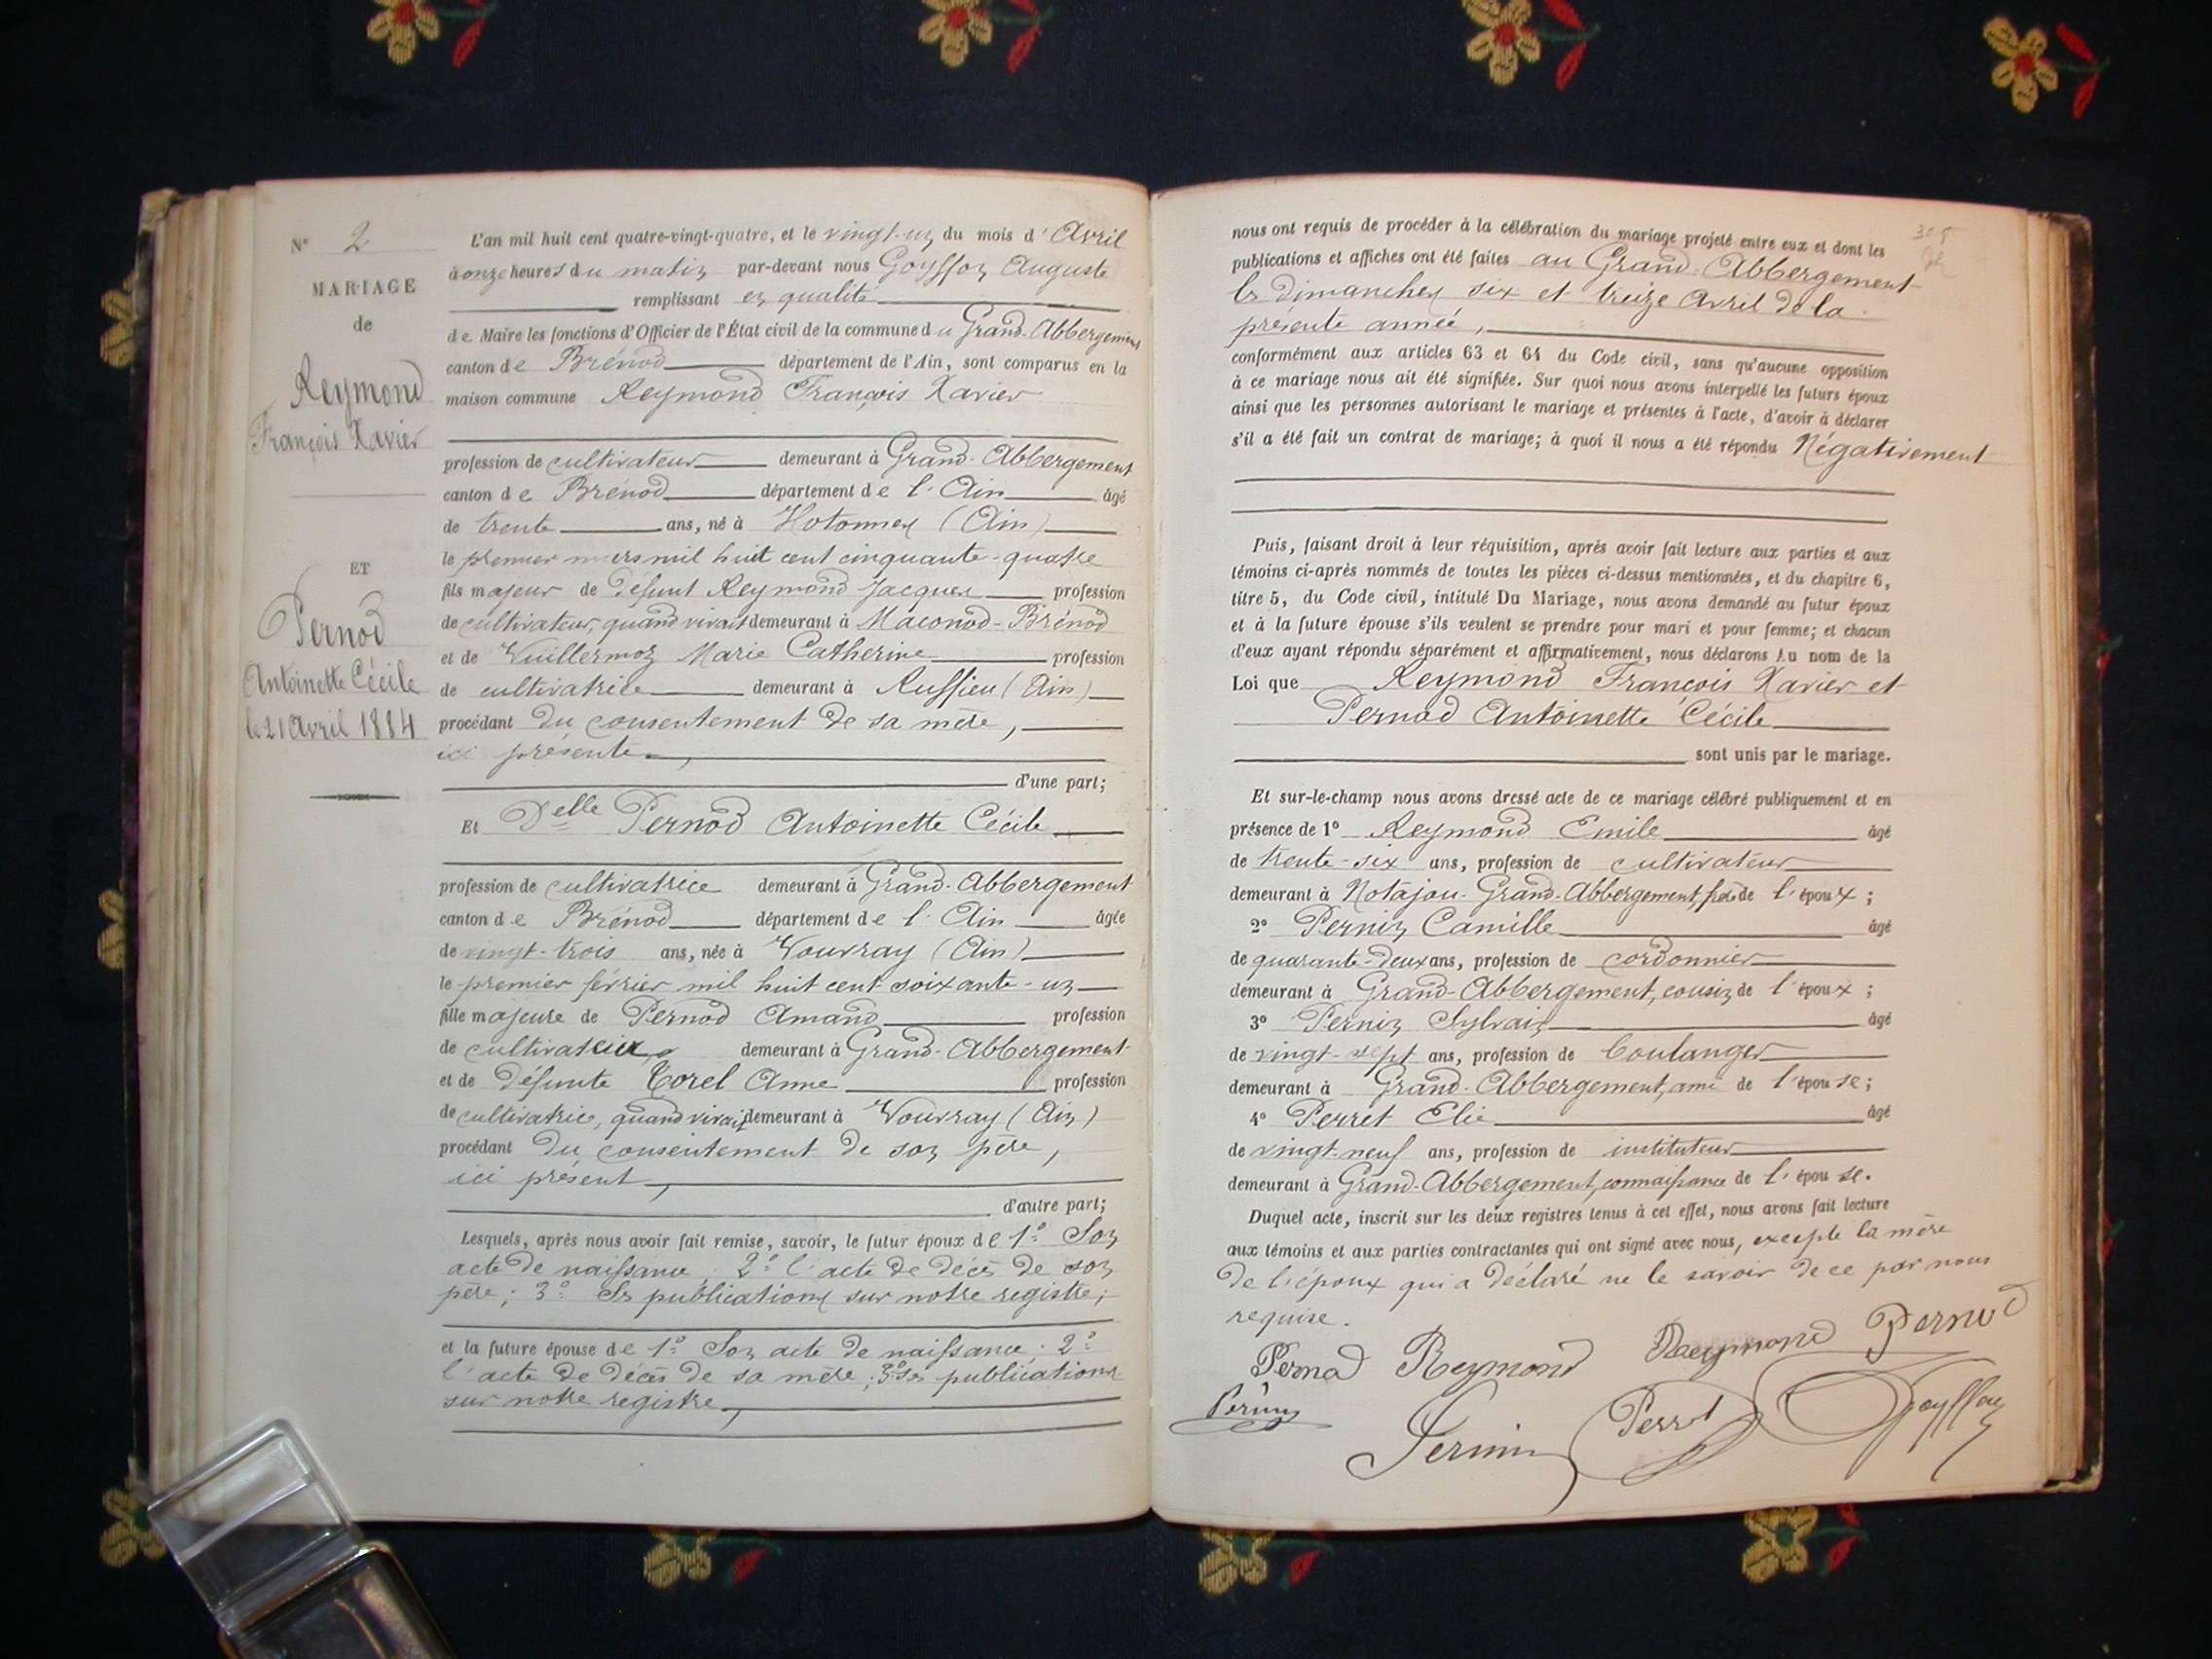 N° 2
MARIAGE
de
Reymond
François Xavier
ET
Pernod
Antoinette Cécile
le 21 Avril 1884
L'an mil huit cent quatre-vingt-quatre, et le vingt-un du mois d'Avril
à onze heures du matin par-devant nous Goyffon Auguste
remplissant en qualité
de Maire les fonctions d'Officier de l'État civil de la commune du Grand-Abbergement
canton de Brénod département de l'Ain, sont comparus en la
maison commune Reymond François Xavier
profession de cultivateur demeurant à Grand-Abbergement
canton de Brénod département de l'Ain âgé
de trente ans, né à Hotonnes (Ain)
le premier mars mil huit cent cinquante-quatre
fils majeur de défunt Reymond Jacques profession
de cultivateur, quand vivait demeurant à Maconod-Brénod
et de Vuillermoz Marie Catherine profession
de cultivatrice demeurant à Ruffieu (Ain)
procédant du consentement de sa mère,
ici présente,
d'une part;
Et Delle Pernod Antoinette Cécile
profession de cultivatrice demeurant à Grand-Abbergement
canton de Brénod département de l'Ain âgée
de vingt-trois ans, née à Vouvray (Ain)
le premier février mil huit cent soixante-un
fille majeure de Pernod Amand profession
de cultivateur demeurant à Grand-Abbergement
et de défunte Corel Anne profession
de cultivatrice, quand vivait demeurant à Vouvray (Ain)
procédant du consentement de son père,
ici présent,
d'autre part;
Lesquels, après nous avoir fait remise, savoir, le futur époux de 1° Son
acte de naissance; 2° l'acte de décès de son
père; 3° Ses publications sur notre registre;
et la future épouse de 1° Son acte de naissance; 2°
l'acte de décès de sa mère; 3° ses publications
sur notre registre,
nous ont requis de procéder à la célébration du mariage projeté entre eux et dont les
publications et affiches ont été faites au Grand-Abbergement
les dimanches six et treize Avril de la
présente année,
conformément aux articles 63 et 64 du Code civil, sans qu'aucune opposition
à ce mariage nous ait été signifiée. Sur quoi nous avons interpellé les futurs époux
ainsi que les personnes autorisant le mariage et présentes à l'acte, d'avoir à déclarer
s'il a été fait un contrat de mariage; à quoi il nous a été répondu Négativement
Puis, faisant droit à leur réquisition, après avoir fait lecture aux parties et aux
témoins ci-après nommés de toutes les pièces ci-dessus mentionnées, et du chapitre 6,
titre 5, du Code civil, intitulé Du Mariage, nous avons demandé au futur époux
et à la future épouse s'ils veulent se prendre pour mari et pour femme; et chacun
d'eux ayant répondu séparément et affirmativement, nous déclarons au nom de la
Loi que Reymond François Xavier et
Pernod Antoinette Cécile
sont unis par le mariage.
Et sur-le-champ nous avons dressé acte de ce mariage célébré publiquement et en
présence de 1° Reymond Emile âgé
de trente-six ans, profession de cultivateur
demeurant à Notajou-Grand-Abbergement, frère de l'époux;
2° Pernin Camille âgé
de quarante-deux ans, profession de cordonnier
demeurant à Grand-Abbergement, cousin de l'époux;
3° Pernin Sylvain âgé
de vingt-sept ans, profession de boulanger
demeurant à Grand-Abbergement, ami de l'épouse;
4° Perret Elie âgé
de vingt-neuf ans, profession de instituteur
demeurant à Grand-Abbergement, connaissance de l'épouse.
Duquel acte, inscrit sur les deux registres tenus à cet effet, nous avons fait lecture
aux témoins et aux parties contractantes qui ont signé avec nous, excepte la mère
de l'époux qui a déclaré ne le savoir de ce par nous
requise.
Pernod Reymond Raeymond Pernod
Pernin Pernin Perret Goyffon